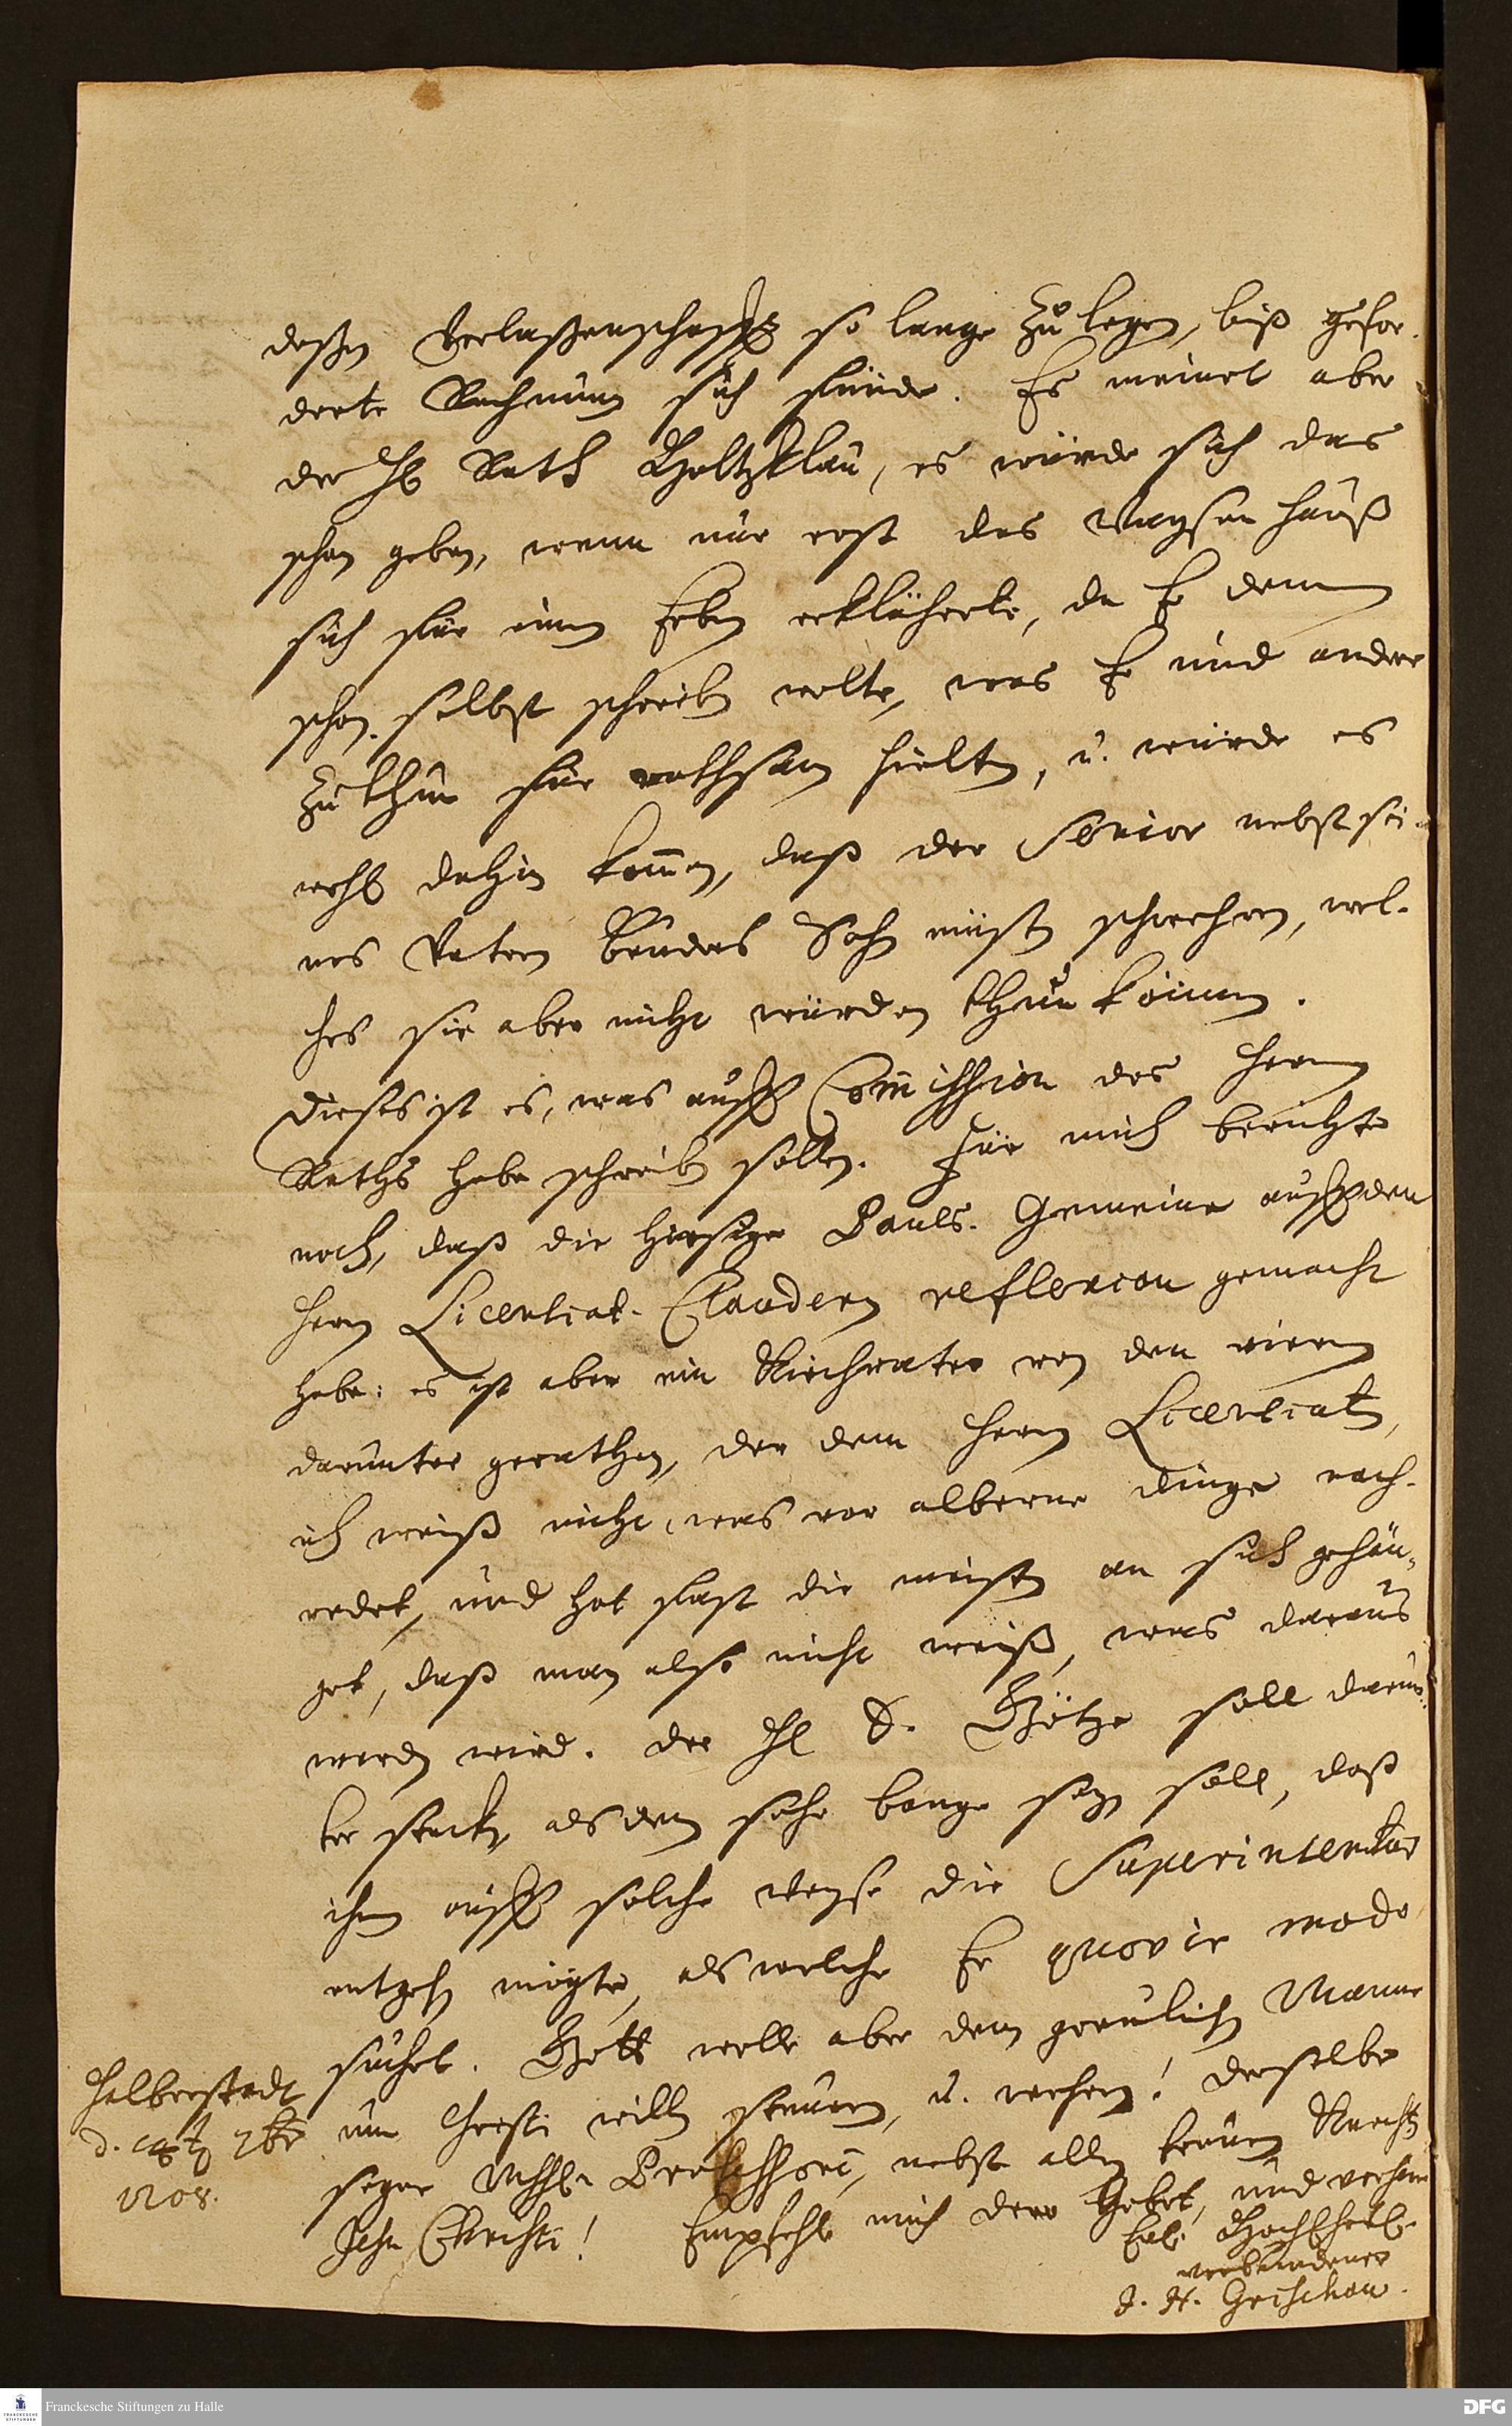 deßen Verlaßenschafft so lange zu legen, biß gefor-
derte Rechnung sich fünde. Es meinet aber
der H. Rath Holtzklau, es würde sich das
schon geben, wenn nur erst das Waysen hauß
sich für einen Erben erklährete, da Er denn
schon selbst schreiben wolte, was Er und andere
zu thun für rathsam hielten, u. würde es
wohl dahin kom̄en, daß der Senior nebst sei-
nes Vatern Bruders Sohn müsten schwehren, wel-
ches sie aber nicht würden thun können.
Dieses ist es, was auff Com̄ission des Herrn
Raths habe schreiben sollen. Für mich berichte
noch, daß die hiesige Pauls-Gemeine auff den
Herrn Licentiat-Claudern reflexion gemacht
habe: es ist aber ein Kirchvater von den vieren
darunter gerathen, der dem Herrn Licentiaten,
ich weiß nicht, was vor alberne dinge nach-
redet, und hat fast die meisten an sich gehän-
get, daß man also nicht weiß, was daraus
werden wird. Der H. D. Götze soll darun-
ter stecken, als dem sehr bange seyn soll, daß
ihm auff solche weyse die Superintendur
entgehen mögte, als welche Er quovis modo
suchet. Gott wolle aber dem greulichen Manne
um Christi willen steuren, u. wehren! Derselbe
segne Professori, nebst allen treuen Knechten
Jesu Christi! Empfehle mich dero Gebet, und verharre
Ew. HochEhrw.
verbundener
J. H. Grischow.
Halberstadt
d. 7br
1708.
Franckesche Stiftungen zu Halle
DFG